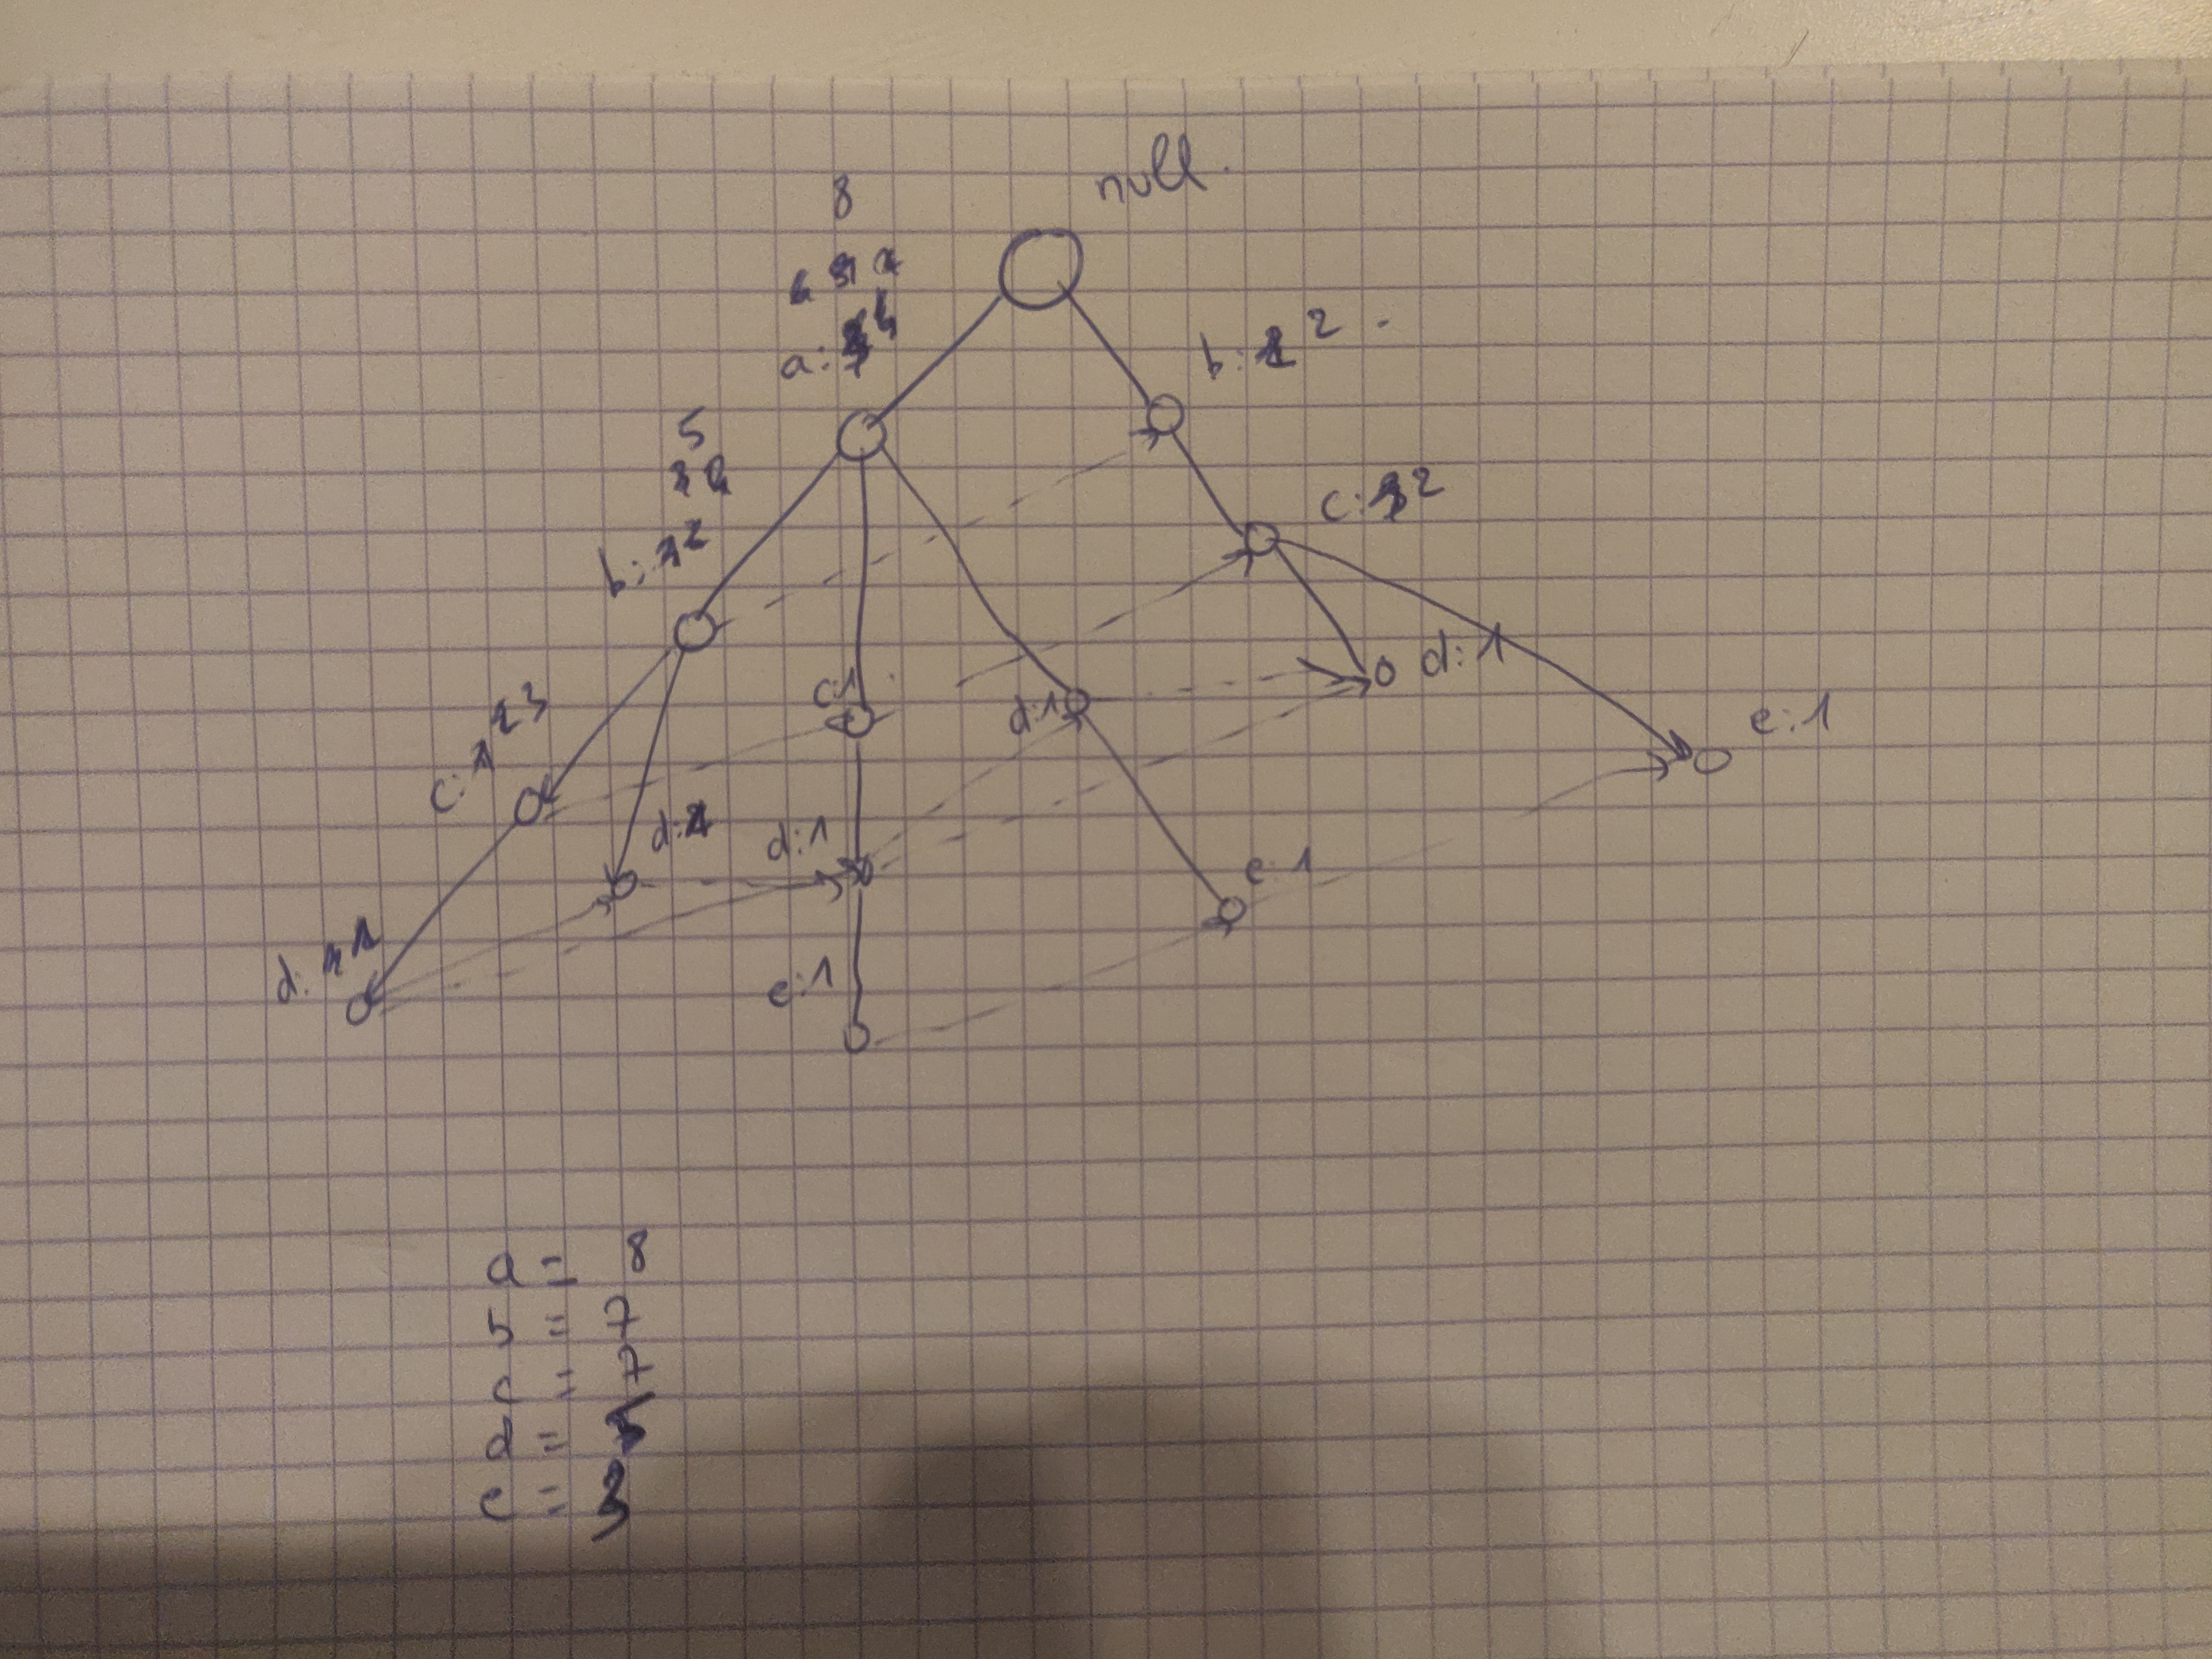 null
8
a:
b: 2
5
b: 1 2
c: 2
c: 1 2 3
c:1
d:1
d: 1
d:1
d:1
e:1
e:1
e:1
a = 8
b = 7
c = 7
d =
e =